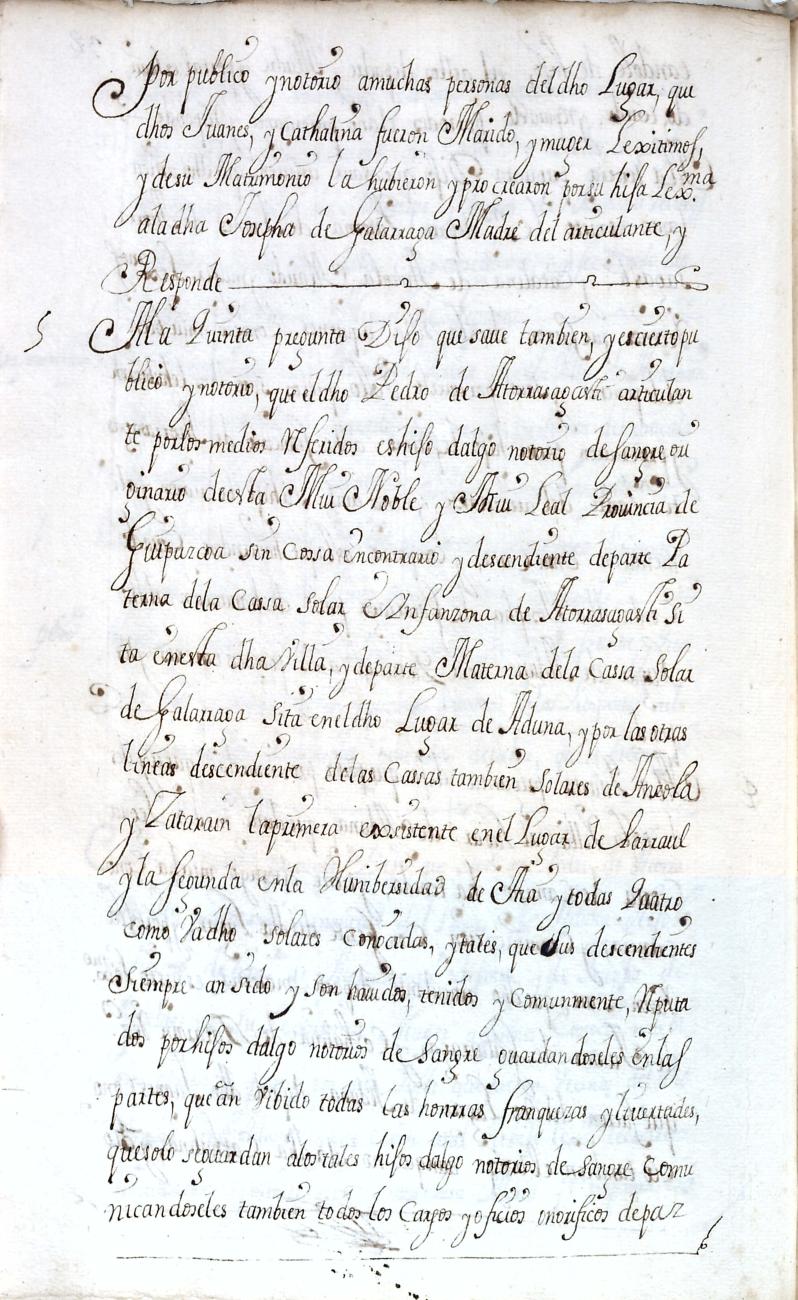 Por publico y notorio a muchas personas del dho Lugar, que
dhos Juanes, y Cathalina fueron Marido, y muger Lexitimos,
y de su Matrimonio la hubieron y procrearon por su hija Lex.ma
a la dha Josepha de Galarraga Madre del articulante, y
Responde
5 A la Quinta pregunta Dijo que save tambien, y es cierto pu
blico y notorio, que el dho Pedro de Atorrasagasti articulan
te por los medios Referidos es hijo dalgo notorio de sangre ori
ginario de esta Mui Noble y Mui Leal Provincia de
Guipuzcoa sin Cossa en contrario y descendiente de parte Pa
terna de la Cassa solar Infanzona de Atorrasagasti si
ta en esta dha Villa, y de parte Materna de la Cassa solar
de Galarraga sita en el dho Lugar de Aduna, y por las otras
lineas descendiente de las Cassas tambien solares de Aneola
y Zatarain la primera exsistente en el Lugar de Larraul
y la segunda en la Hunibersidad de Aia y todas Quatro
como Va dho solares Conocidas, y tales, que sus descendientes
siempre an sido y son hauidos, tenidos y Comunmente, Reputa
dos por hijos dalgo notorios de sangre guardandoseles en las
partes, que an Vibido todas las honrras franquezas y livertades,
que solo se guardan a los tales hijos dalgo notorios de sangre Comu
nicandoseles tambien todos los Cargos y oficios onorificos de paz